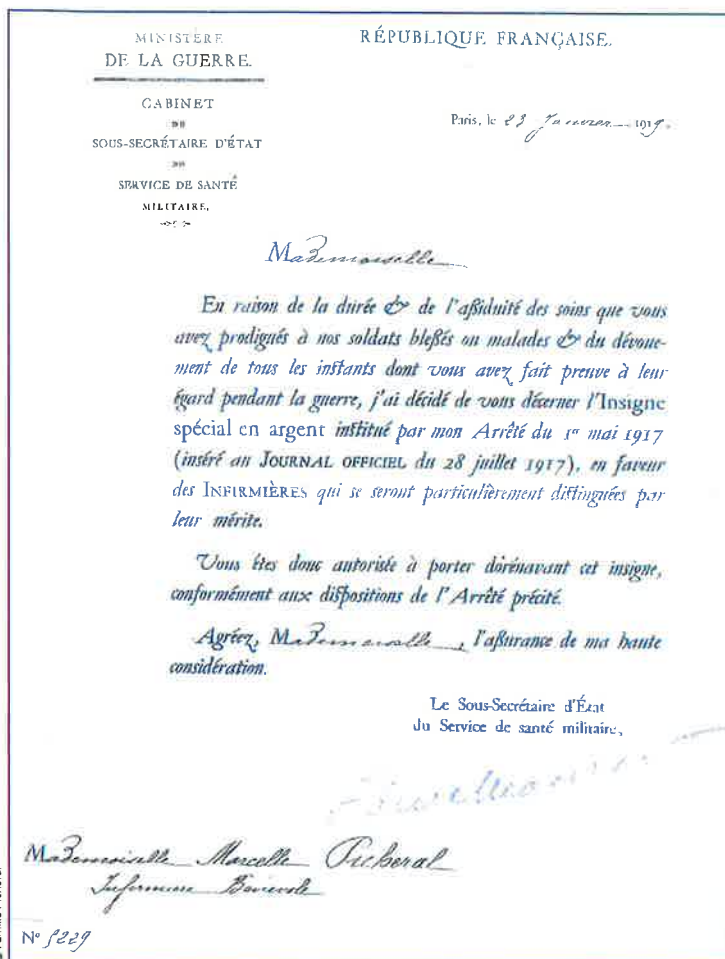 MINISTÈRE
DE LA GUERRE.
RÉPUBLIQUE FRANÇAISE.
CABINET
DU
SOUS-SECRÉTAIRE D'ÉTAT
DU
SERVICE DE SANTÉ
MILITAIRE.
Paris, le 23 Janvier 1919.
Mademoiselle
En raison de la durée & de l'assiduité des soins que vous
avez prodigués à nos soldats blessés ou malades & du dévoue-
ment de tous les instants dont vous avez fait preuve à leur
égard pendant la guerre, j'ai décidé de vous décerner l'Insigne
spécial en argent institué par mon Arrêté du 1er mai 1917
(inséré au JOURNAL OFFICIEL du 28 juillet 1917), en faveur
des INFIRMIÈRES qui se seront particulièrement distinguées par
leur mérite.
Vous êtes donc autorisée à porter dorénavant cet insigne,
conformément aux dispositions de l'Arrêté précité.
Agréez, Mademoiselle, l'assurance de ma haute
considération.
Le Sous-Secrétaire d'État
du Service de santé militaire,
Mademoiselle Marcelle Picheral
Infirmière Bénévole
N° 5229